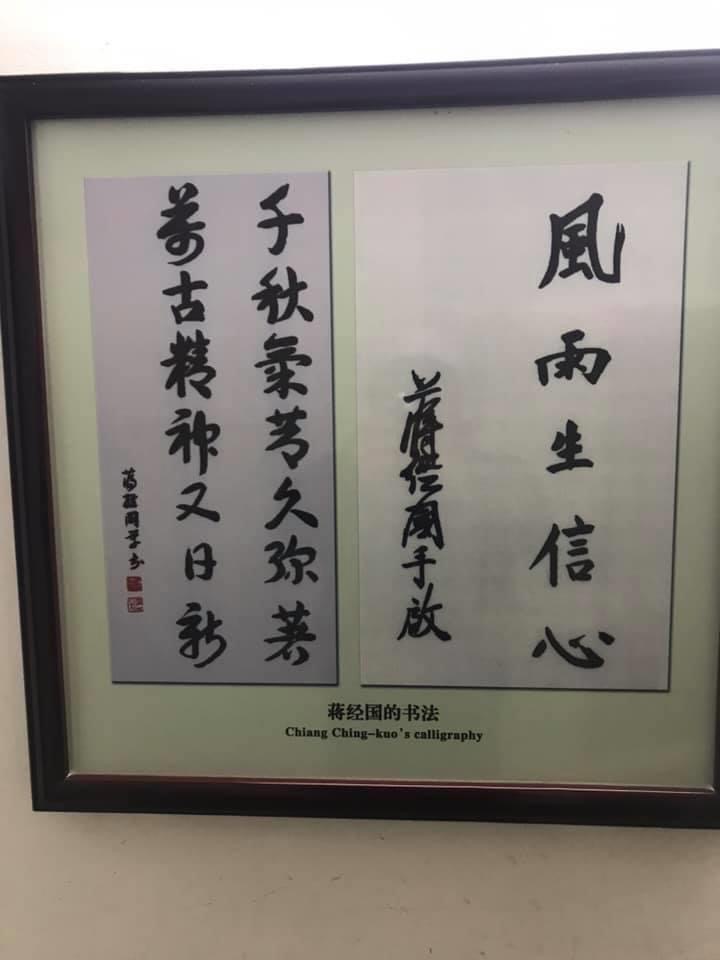 風雨生信心
蔣經國手啟
千秋氣節久弥著
萬古精神又日新
蔣經國
蒋经国的书法
Chiang Ching-kuo's calligraphy